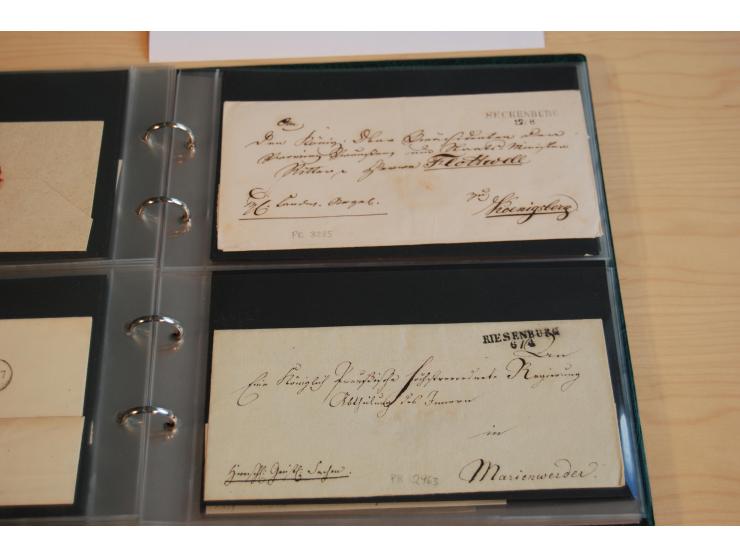 SECKENBURG
12/8
An
den König: Ober Präsidenten der
Provinz Preußen, und Staats Minister
Ritter p Herrn Flottwell
zu
Koenigsberg
PK 3285
RIESENBURG
6/4
An
Eine Königlich Preußische Hochverordnete Regierung
Abtheilung des Innern
in
Marienwerder.
Sachen.
PK 2963
7